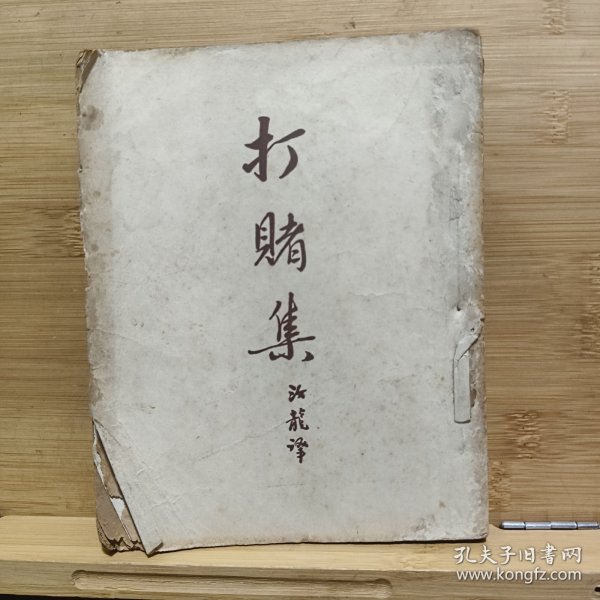 打賭集
汝龍譯
孔夫子旧书网
www.kongfz.com